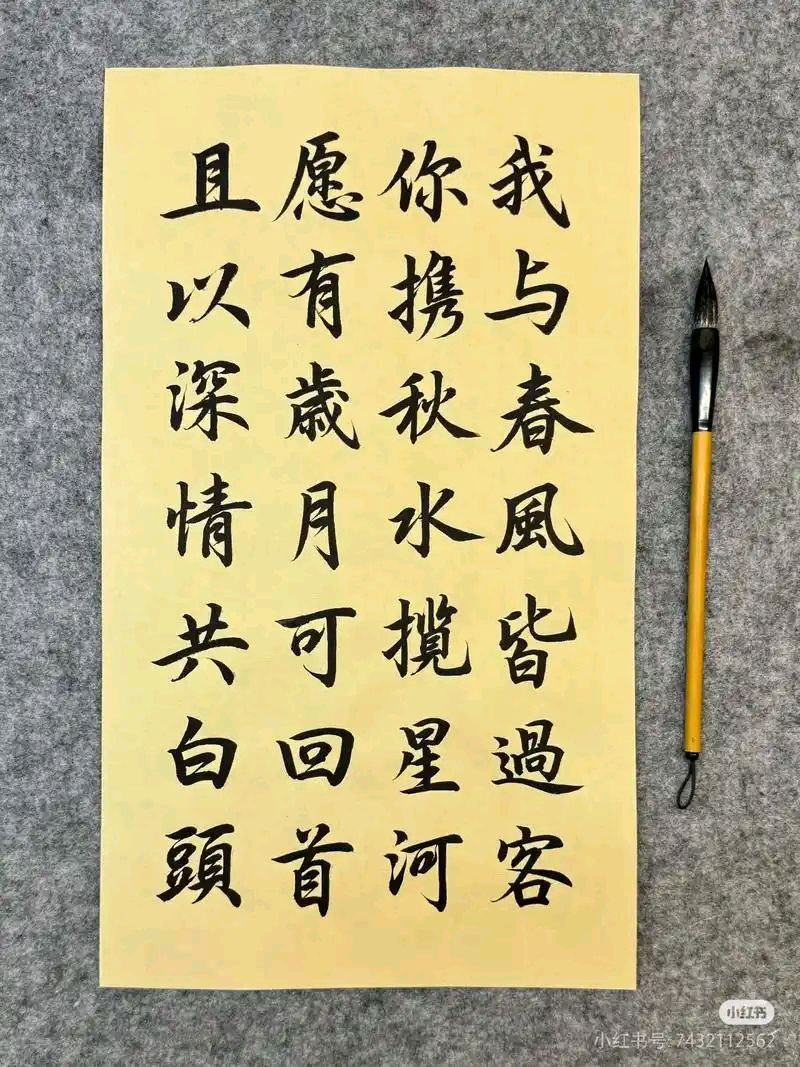 我与春風皆過客
你携秋水揽星河
愿有歲月可回首
且以深情共白頭
小红书
小红书号:7432112562